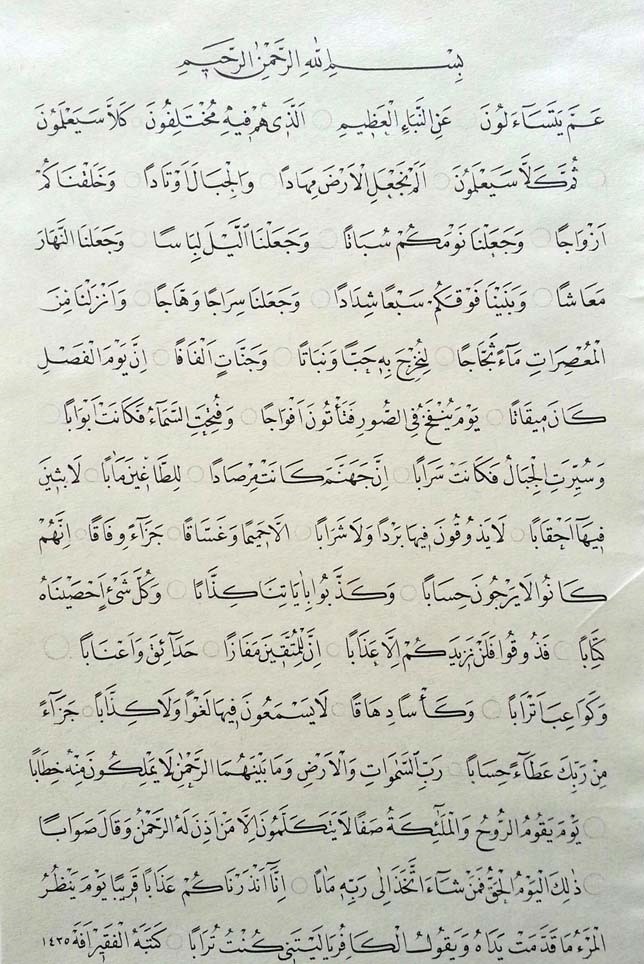 بِسْمِ اللهِ الرَّحْمٰنِ الرَّحٖيمِ
عَمَّ يَتَسَاءَلُونَ ○ عَنِ النَّبَاِ الْعَظٖيمِ ○ اَلَّذٖى هُمْ فٖيهِ مُخْتَلِفُونَ ○ كَلَّا سَيَعْلَمُونَ
○ ثُمَّ كَلَّا سَيَعْلَمُونَ ○ اَلَمْ نَجْعَلِ الْاَرْضَ مِهَادًا ○ وَالْجِبَالَ اَوْتَادًا ○ وَخَلَقْنَاكُمْ
اَزْوَاجًا ○ وَجَعَلْنَا نَوْمَكُمْ سُبَاتًا ○ وَجَعَلْنَا الَّيْلَ لِبَاسًا ○ وَجَعَلْنَا النَّهَارَ
مَعَاشًا ○ وَبَنَيْنَا فَوْقَكُمْ سَبْعًا شِدَادًا ○ وَجَعَلْنَا سِرَاجًا وَهَّاجًا ○ وَاَنْزَلْنَا مِنَ
الْمُعْصِرَاتِ مَاءً ثَجَّاجًا ○ لِنُخْرِجَ بِهٖ حَبًّا وَنَبَاتًا ○ وَجَنَّاتٍ اَلْفَافًا ○ اِنَّ يَوْمَ الْفَصْلِ
كَانَ مٖيقَاتًا ○ يَوْمَ يُنْفَخُ فِى الصُّورِ فَتَأْتُونَ اَفْوَاجًا ○ وَفُتِحَتِ السَّمَاءُ فَكَانَتْ اَبْوَابًا ○
وَسُيِّرَتِ الْجِبَالُ فَكَانَتْ سَرَابًا ○ اِنَّ جَهَنَّمَ كَانَتْ مِرْصَادًا ○ لِلطَّاغٖينَ مَاٰبًا ○ لَابِثٖينَ
فٖيهَا اَحْقَابًا ○ لَا يَذُوقُونَ فٖيهَا بَرْدًا وَلَا شَرَابًا ○ اِلَّا حَمٖيمًا وَغَسَّاقًا ○ جَزَاءً وِفَاقًا ○ اِنَّهُمْ
كَانُوا لَا يَرْجُونَ حِسَابًا ○ وَكَذَّبُوا بِاٰيَاتِنَا كِذَّابًا ○ وَكُلَّ شَىْءٍ اَحْصَيْنَاهُ
كِتَابًا ○ فَذُوقُوا فَلَنْ نَزٖيدَكُمْ اِلَّا عَذَابًا ○ اِنَّ لِلْمُتَّقٖينَ مَفَازًا ○ حَدَائِقَ وَاَعْنَابًا ○
وَكَوَاعِبَ اَتْرَابًا ○ وَكَأْسًا دِهَاقًا ○ لَا يَسْمَعُونَ فٖيهَا لَغْوًا وَلَا كِذَّابًا ○ جَزَاءً
مِنْ رَبِّكَ عَطَاءً حِسَابًا ○ رَبِّ السَّمٰوَاتِ وَالْاَرْضِ وَمَا بَيْنَهُمَا الرَّحْمٰنِ لَا يَمْلِكُونَ مِنْهُ خِطَابًا
○ يَوْمَ يَقُومُ الرُّوحُ وَالْمَلٰئِكَةُ صَفًّا لَا يَتَكَلَّمُونَ اِلَّا مَنْ اَذِنَ لَهُ الرَّحْمٰنُ وَقَالَ صَوَابًا
○ ذٰلِكَ الْيَوْمُ الْحَقُّ فَمَنْ شَاءَ اتَّخَذَ اِلٰى رَبِّهٖ مَاٰبًا ○ اِنَّا اَنْذَرْنَاكُمْ عَذَابًا قَرٖيبًا يَوْمَ يَنْظُرُ
الْمَرْءُ مَا قَدَّمَتْ يَدَاهُ وَيَقُولُ الْكَافِرُ يَالَيْتَنٖى كُنْتُ تُرَابًا ○ كَتَبَهُ الْفَقٖير ١٤٣٥